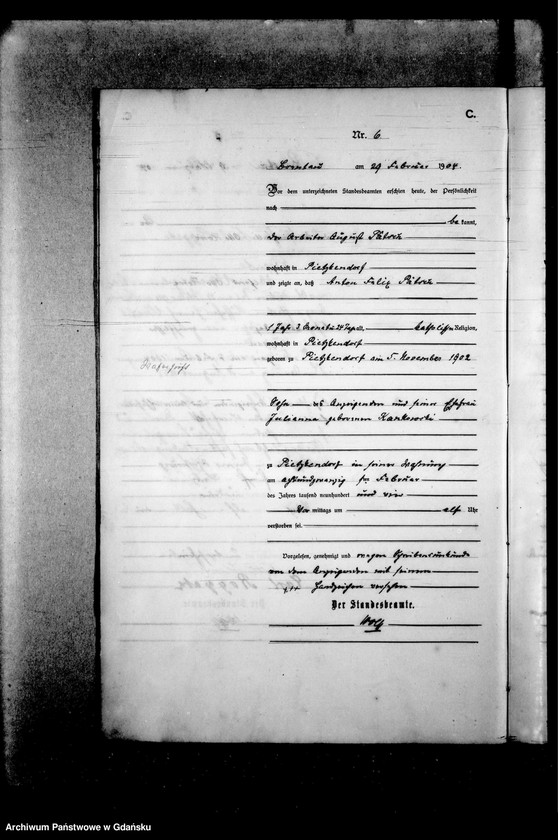 C.
Nr. 6
Brentau am 29 Februar 1904.
Vor dem unterzeichneten Standesbeamten erschien heute, der Persönlichkeit
nach
be kannt,
der Arbeiter August
wohnhaft in Pietzkendorf
und zeigte an, daß Anton Felix
1 Jahr 3 Monate 24 Tage alt, katholischer Religion,
wohnhaft in Pietzkendorf
geboren zu Pietzkendorf am 5. November 1902
Sohn des Anzeigenden und seiner Ehefrau
Julianna geborenen Kankowski
zu Pietzkendorf in seiner Wohnung
am achtundzwanzig ten Februar
des Jahres tausend neunhundert und vier
Vor mittags um elf Uhr
verstorben sei.
Vorgelesen, genehmigt und wegen Schreibensunkunde
von dem Anzeigenden mit seinem
+++ Handzeichen versehen
Der Standesbeamte.
Archiwum Państwowe w Gdańsku